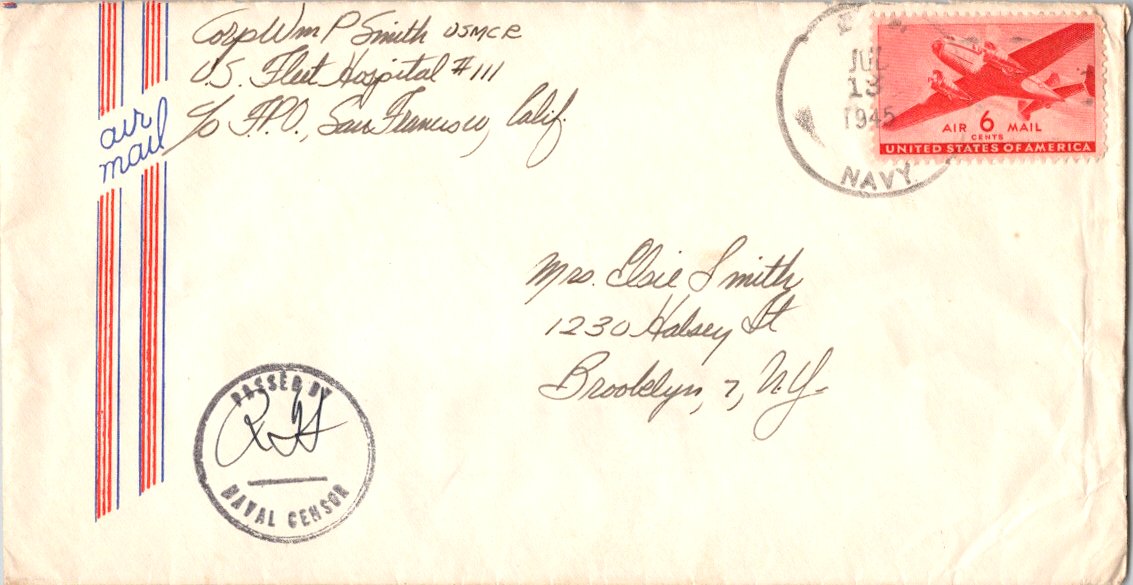 Corp Wm P Smith USMCR
U.S. Fleet Hospital #111
c/o F.P.O., San Francisco, Calif.
air
mail
JUL
13
1945
NAVY
AIR 6 MAIL
CENTS
UNITED STATES OF AMERICA
Mrs. Elsie Smith
1230 Halsey St
Brooklyn, 7, N.Y.
PASSED BY
NAVAL CENSOR